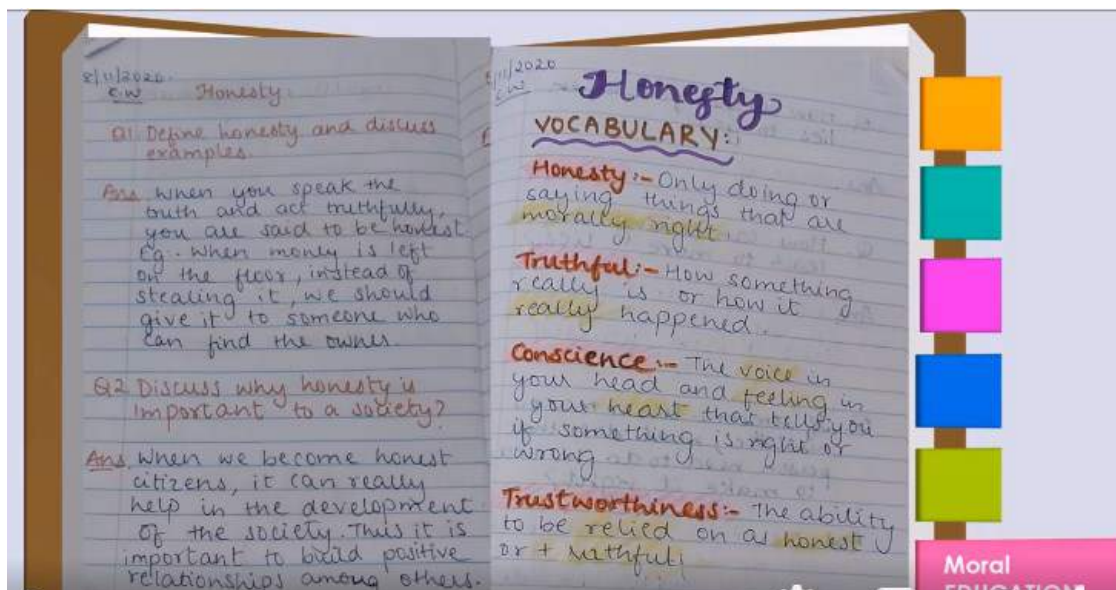 8/11/2020.
C.W
Honesty
Q1 Define honesty and discuss
examples.
Ans When you speak the
truth and act truthfully,
you are said to be honest.
Eg:- When money is left
on the floor, instead of
stealing it, we should
give it to someone who
can find the owner.
Q2 Discuss why honesty is
important to a society?
Ans When we become honest
citizens, it can really
help in the development
of the society. Thus it is
important to build positive
relationships among others.
/11/2020
C.W
Honesty
VOCABULARY:
Honesty:- Only doing or
saying things that are
morally right
Truthful:- How something
really is or how it
really happened.
Conscience:- The voice in
your head and feeling in
your heart that tells you
if something is right or
wrong
Trustworthiness:- The ability
to be relied on as honest
or
Moral
EDUCATION